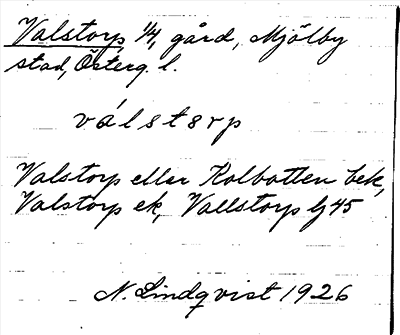 Valstorp, 1/4, gård, Mjölby
stad, Österg. l.
válstorp
Valstorp eller Kolbotten bek,
Valstorp ek, Vallstorp lj 45
N. Lindqvist 1926